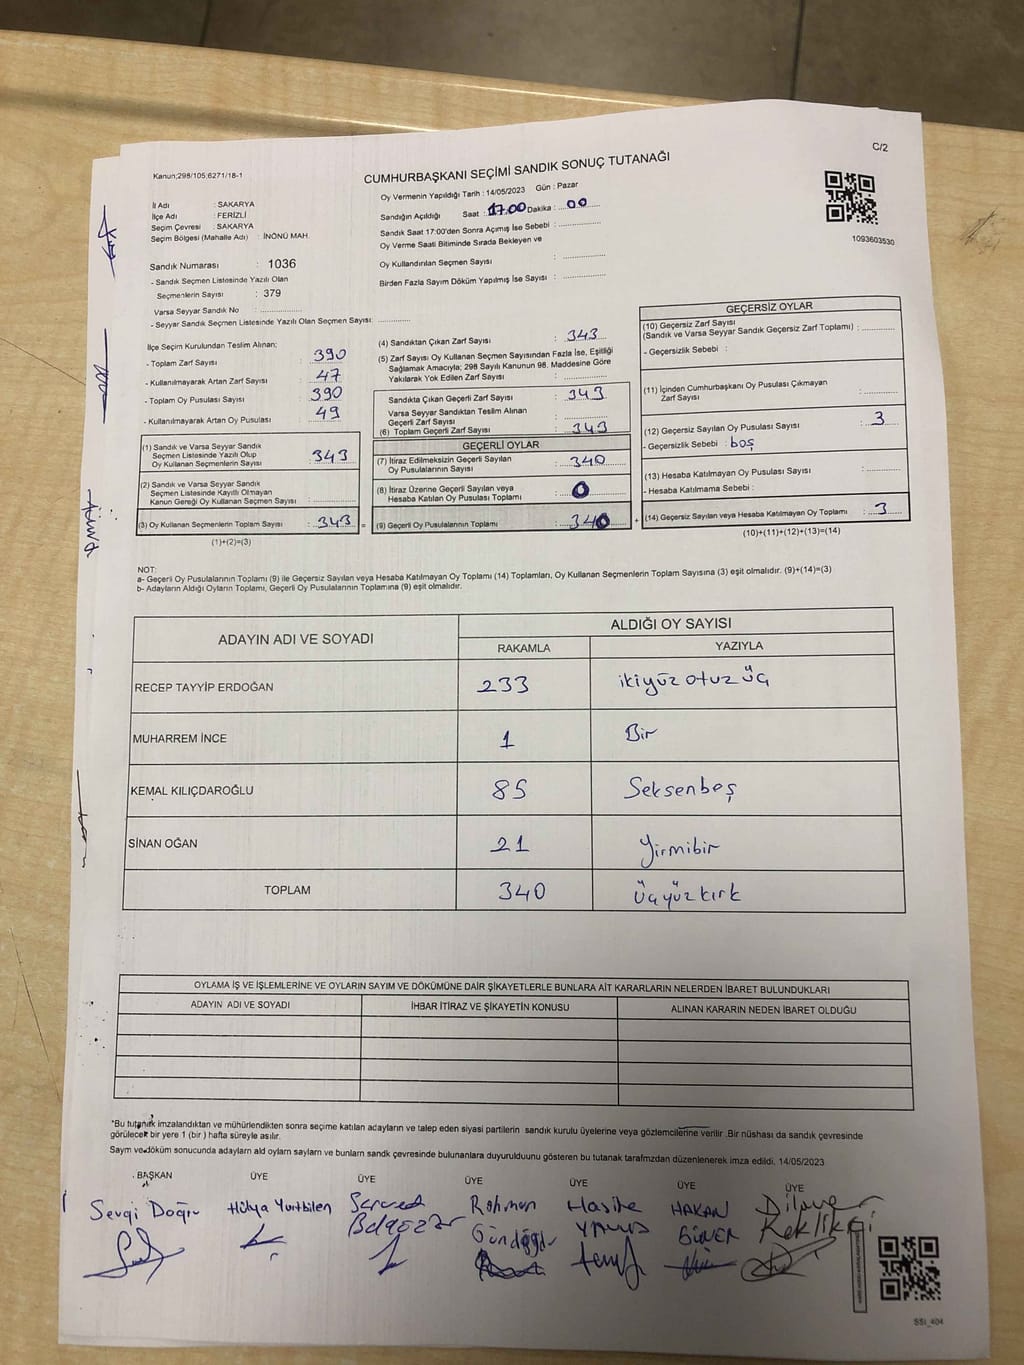 C/2
Kanun;298/105;6271/18-1
CUMHURBAŞKANI SEÇİMİ SANDIK SONUÇ TUTANAĞI
1093603530
İl Adı : SAKARYA
İlçe Adı : FERİZLİ
Seçim Çevresi : SAKARYA
Seçim Bölgesi (Mahalle Adı) : İNÖNÜ MAH.
Sandık Numarası : 1036
- Sandık Seçmen Listesinde Yazılı Olan
Seçmenlerin Sayısı : 379
Varsa Seyyar Sandık No :
- Seyyar Sandık Seçmen Listesinde Yazılı Olan Seçmen Sayısı:
Oy Vermenin Yapıldığı Tarih : 14/05/2023 Gün : Pazar
Sandığın Açıldığı Saat : 17.00 Dakika : 00
Sandık Saat 17:00'den Sonra Açımış İse Sebebi :
Oy Verme Saati Bitiminde Sırada Bekleyen ve
Oy Kullandırılan Seçmen Sayısı :
Birden Fazla Sayım Döküm Yapılmış İse Sayısı :
İlçe Seçim Kurulundan Teslim Alınan;
- Toplam Zarf Sayısı : 390
- Kullanılmayarak Artan Zarf Sayısı : 47
- Toplam Oy Pusulası Sayısı : 390
- Kullanılmayarak Artan Oy Pusulası : 49
(1) Sandık ve Varsa Seyyar Sandık
Seçmen Listesinde Yazılı Olup
Oy Kullanan Seçmenlerin Sayısı : 343
(2) Sandık ve Varsa Seyyar Sandık
Seçmen Listesinde Kayıtlı Olmayan
Kanun Gereği Oy Kullanan Seçmen Sayısı :
(3) Oy Kullanan Seçmenlerin Toplam Sayısı : 343 =
(1)+(2)=(3)
(4) Sandıktan Çıkan Zarf Sayısı : 343
(5) Zarf Sayısı Oy Kullanan Seçmen Sayısından Fazla İse, Eşitliği
Sağlamak Amacıyla; 298 Sayılı Kanunun 98. Maddesine Göre
Yakılarak Yok Edilen Zarf Sayısı :
Sandıkta Çıkan Geçerli Zarf Sayısı : 343
Varsa Seyyar Sandıktan Teslim Alınan
Geçerli Zarf Sayısı :
(6) Toplam Geçerli Zarf Sayısı : 343
GEÇERLİ OYLAR
(7) İtiraz Edilmeksizin Geçerli Sayılan
Oy Pusulalarının Sayısı : 340
(8) İtiraz Üzerine Geçerli Sayılan veya
Hesaba Katılan Oy Pusulası Toplamı : 0
(9) Geçerli Oy Pusulalarının Toplamı : 340 +
GEÇERSİZ OYLAR
(10) Geçersiz Zarf Sayısı
(Sandık ve Varsa Seyyar Sandık Geçersiz Zarf Toplamı) :
- Geçersizlik Sebebi :
(11) İçinden Cumhurbaşkanı Oy Pusulası Çıkmayan
Zarf Sayısı :
(12) Geçersiz Sayılan Oy Pusulası Sayısı : 3
- Geçersizlik Sebebi : boş
(13) Hesaba Katılmayan Oy Pusulası Sayısı :
- Hesaba Katılmama Sebebi :
(14) Geçersiz Sayılan veya Hesaba Katılmayan Oy Toplamı : 3
(10)+(11)+(12)+(13)=(14)
NOT:
a- Geçerli Oy Pusulalarının Toplamı (9) ile Geçersiz Sayılan veya Hesaba Katılmayan Oy Toplamı (14) Toplamları, Oy Kullanan Seçmenlerin Toplam Sayısına (3) eşit olmalıdır. (9)+(14)=(3)
b- Adayların Aldığı Oyların Toplamı, Geçerli Oy Pusulalarının Toplamına (9) eşit olmalıdır.
ADAYIN ADI VE SOYADI
ALDIĞI OY SAYISI
RAKAMLA YAZIYLA
RECEP TAYYİP ERDOĞAN 233 ikiyüz otuz üç
MUHARREM İNCE 1 Bir
KEMAL KILIÇDAROĞLU 85 Seksenbeş
SİNAN OĞAN 21 Yirmibir
TOPLAM 340 Üçyüzkırk
OYLAMA İŞ VE İŞLEMLERİNE VE OYLARIN SAYIM VE DÖKÜMÜNE DAİR ŞİKAYETLERLE BUNLARA AİT KARARLARIN NELERDEN İBARET BULUNDUKLARI
ADAYIN ADI VE SOYADI İHBAR İTİRAZ VE ŞİKAYETİN KONUSU ALINAN KARARIN NEDEN İBARET OLDUĞU
*Bu tutanak imzalandıktan ve mühürlendikten sonra seçime katılan adayların ve talep eden siyasi partilerin sandık kurulu üyelerine veya gözlemcilerine verilir .Bir nüshası da sandık çevresinde
görülecek bir yere 1 (bir ) hafta süreyle asılır.
Sayım ve döküm sonucunda adayların ald oyların sayları ve bunların sandk çevresinde bulunanlara duyurulduunu gösteren bu tutanak tarafmzdan düzenlenerek imza edildi. 14/05/2023
BAŞKAN ÜYE ÜYE ÜYE ÜYE ÜYE ÜYE
Sevgi Doğru Hülya Yurtbilen Rahman Hasibe HAKAN Dilaver
Gündoğdu GÜNER Keklikçi
SSI_404